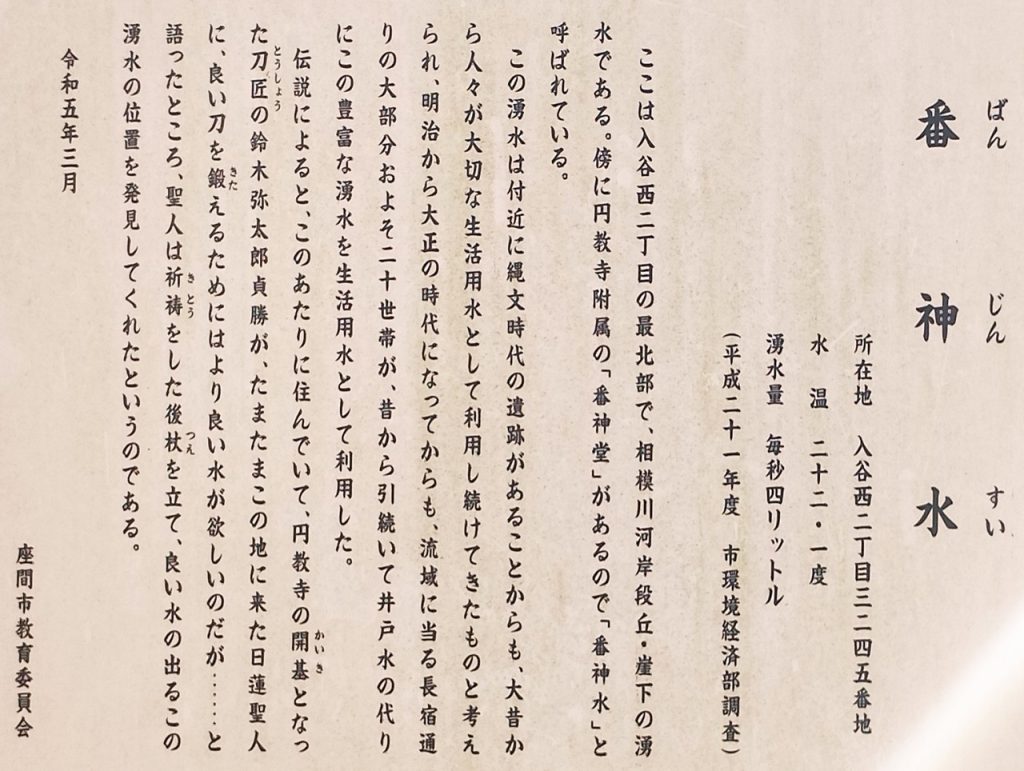 番神水
ばん じん すい
所在地 入谷西二丁目三二四五番地
水 温 二十二・一度
湧水量 毎秒四リットル
（平成二十一年度 市環境経済部調査）
ここは入谷西二丁目の最北部で、相模川河岸段丘・崖下の湧
水である。傍に円教寺附属の「番神堂」があるので「番神水」と
呼ばれている。
この湧水は付近に縄文時代の遺跡があることからも、大昔か
ら人々が大切な生活用水として利用し続けてきたものと考え
られ、明治から大正の時代になってからも、流域に当る長宿通
りの大部分およそ二十世帯が、昔から引続いて井戸水の代り
にこの豊富な湧水を生活用水として利用した。
伝説によると、このあたりに住んでいて、円教寺の開基となっ
かいき
た刀匠の鈴木弥太郎貞勝が、たまたまこの地に来た日蓮聖人
とうしょう
に、良い刀を鍛えるためにはより良い水が欲しいのだが……と
きた
語ったところ、聖人は祈祷をした後杖を立て、良い水の出るこの
きとう つえ
湧水の位置を発見してくれたというのである。
令和五年三月
座間市教育委員会